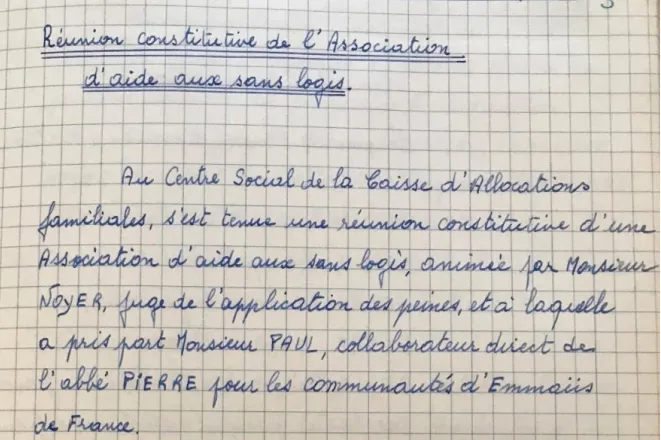 Réunion constitutive de l'Association
d'aide aux sans logis.
Au Centre Social de la Caisse d'Allocations
familiales, s'est tenue une réunion constitutive d'une
Association d'aide aux sans logis, animée par Monsieur
NOYER, juge de l'application des peines, et à laquelle
a pris part Monsieur PAUL, collaborateur direct de
l'abbé PIERRE pour les communautés d'Emmaüs
de France.